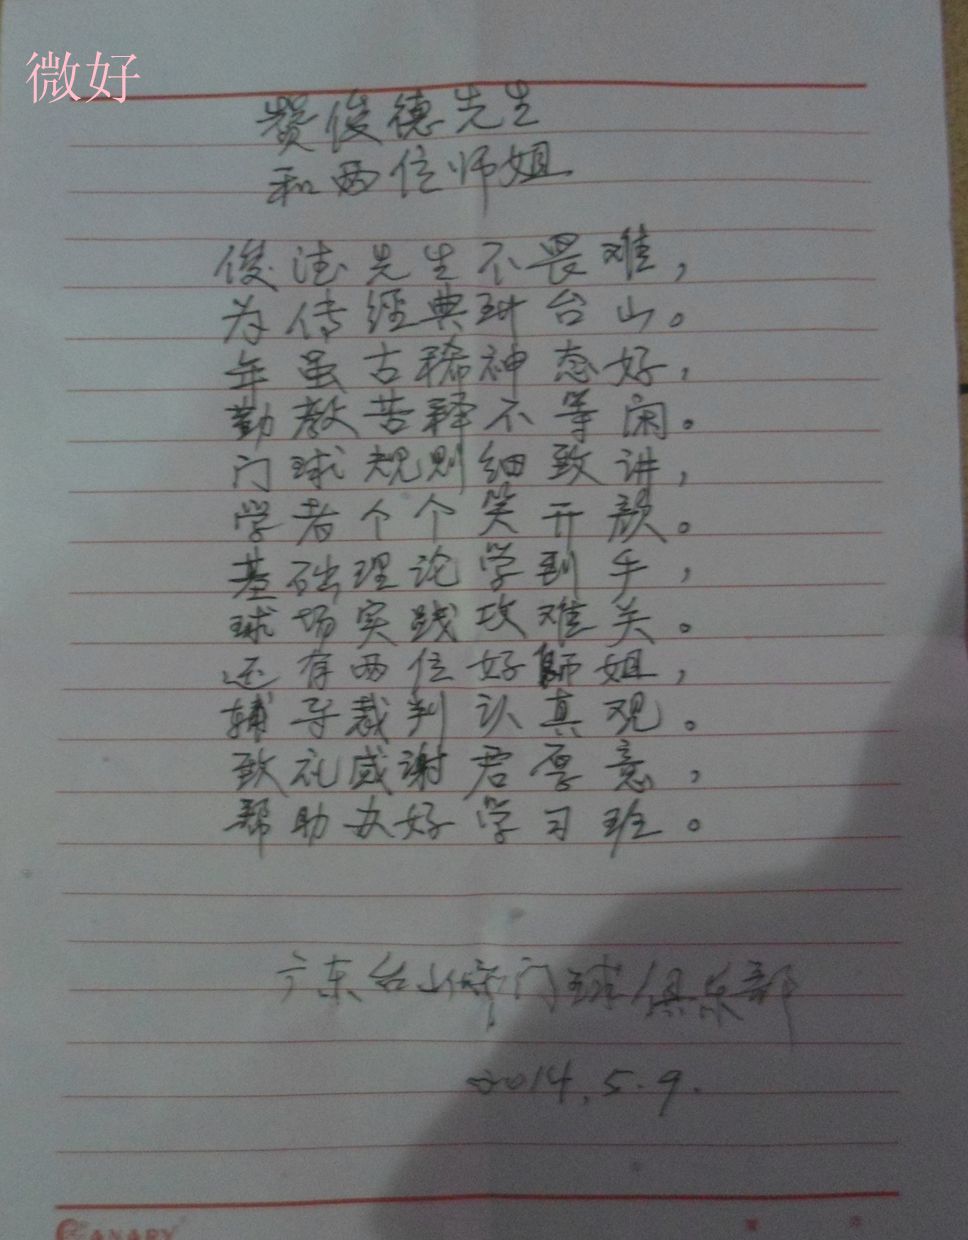 微好
赞俊德先生
和两位师姐
俊德先生不畏难，
为传经典到台山。
年虽古稀神态好，
勤教苦释不等闲。
门球规则细致讲，
学者个个笑开颜。
基础理论学到手，
球场实践攻难关。
还有两位好师姐，
辅导裁判认真观。
致礼感谢君厚意，
帮助办好学习班。
广东台山市门球俱乐部
2014.5.9.
CANARY